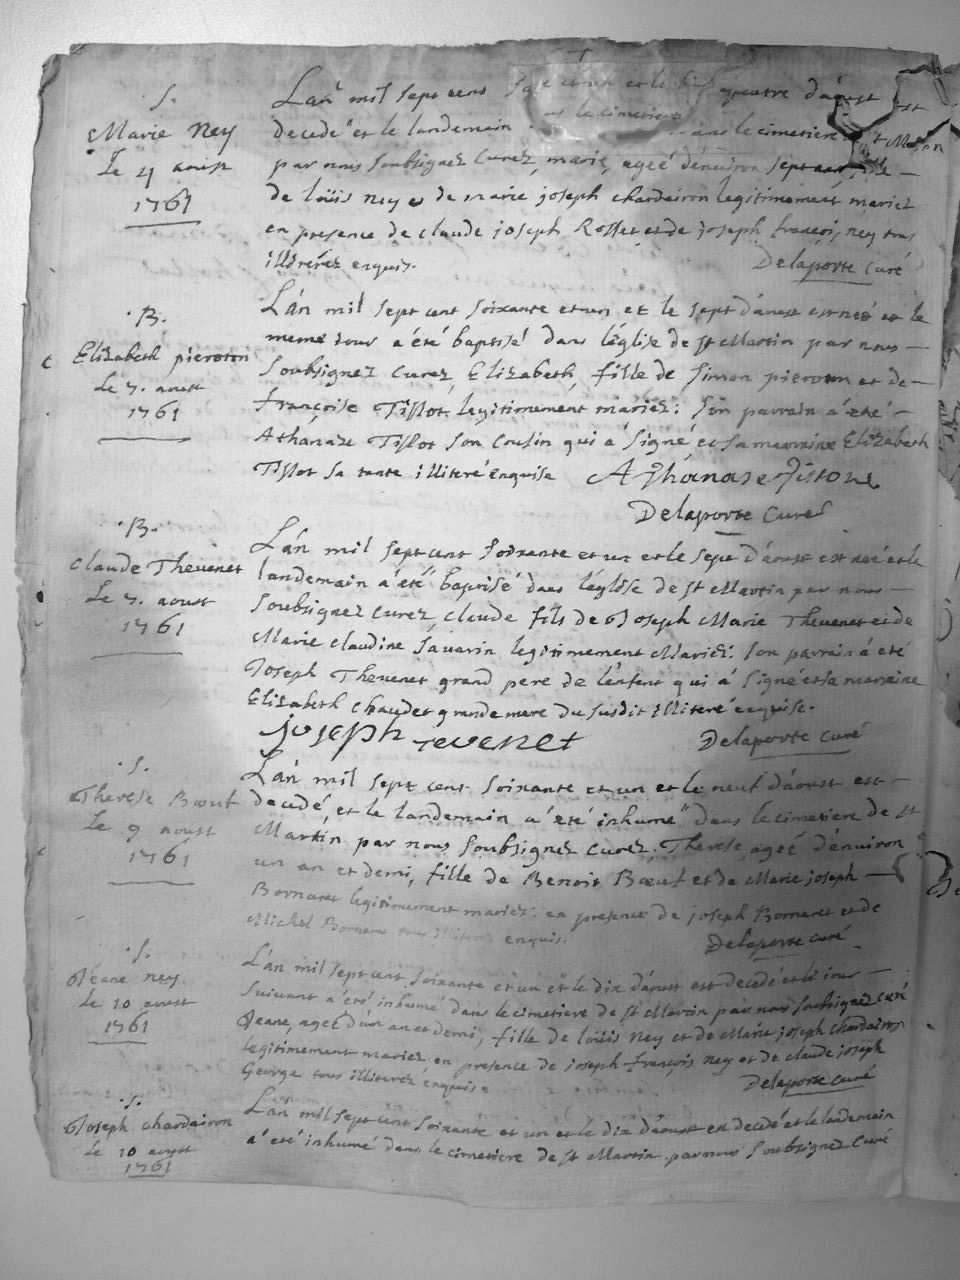 S.
Marie Ney
Le 4 aoust
1761
L'an mil sept cens et le quatre d'aoust est
decedé et le landemain dans le cimetiere St Martin
par nous soubsignez curez, marie, ageé d'environ sept ans, fille
de loüis ney et de marie joseph chardairon legitimement mariez
en presence de claude joseph Rosset et de joseph françois ney tous
illiterez enquis. Delaporte curé
B.
Elizabeth pieroton
Le 7. aoust
1761
L'an mil sept cent soixante et un et le sept d'aoust est neé et le
meme jour a été baptisé dans l'église de st Martin par nous
soubsignez curez, Elizabeth, fille de simon pieroton et de
françoise Tissot, legitimement mariez: son parrain a été
Athanaze Tissot son cousin qui a signé et sa marraine Elizabeth
Tissot sa tante illiteré enquise Athanaze Tissot
Delaporte curé
B.
Claude Thevenet
Le 7. aoust
1761
L'an mil sept cent soixante et un et le sept d'aoust est né et le
landemain a été baptisé dans l'église de st Martin par nous
soubsignez curez claude fils de Joseph Marie Thevenet et de
Marie claudine savarin legitimement Mariez: son parrain a été
Joseph Thevenet grand pere de l'enfent qui a signé et la marraine
Elizabeth Chaudet grandemere du susdit illiteré enquise.
joseph tevenet Delaporte curé
S.
Therese Bœuf
Le 9 aoust
1761
L'an mil sept cent soixante et un et le neuf d'aoust est
decedé, et le landemain a été inhumé dans le cimetiere de st
Martin par nous soubsignez curez. Therese, ageé d'environ
un an et demi, fille de Benoit Bœuf et de Marie joseph
Borneret legitimement mariez: en presence de joseph Borneret et de
Michel Borneret tous illiterez enquis. Delaporte curé
S.
Jeane ney
Le 10 aoust
1761
L'an mil sept cent soixante et un et le dix d'aoust est decedé et le jour
suivant a été inhumé dans le cimetiere de st Martin par nous soubsignez curé
Jeane, ageé d'un an et demi, fille de loüis Ney et de Marie joseph chardairon
legitimement mariez en presence de joseph françois ney et de claude joseph
George tous illiterez enquis. Delaporte curé
S.
Joseph chardairon
Le 10 aoust
1761
L'an mil sept cent soixante et un et le dix d'aoust est decedé et le landemain
a été inhumé dans le cimetiere de st Martin par nous soubsignez curé